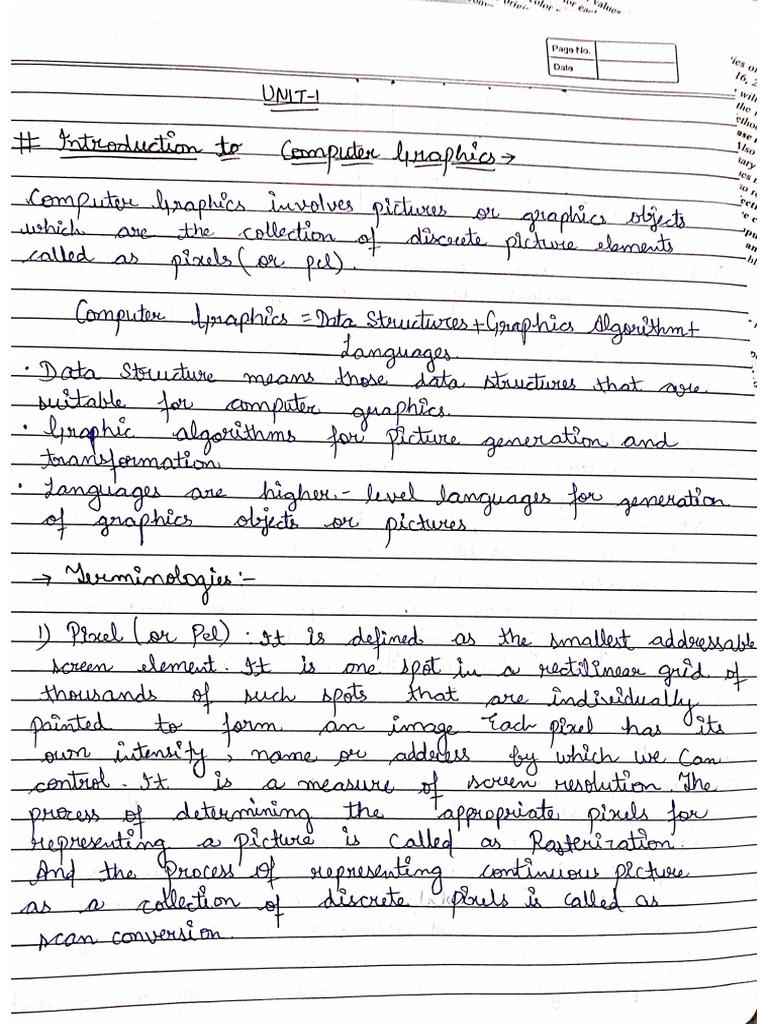 values
Page No.
Date
UNIT-1
# Introduction to Computer Graphics →
Computer Graphics involves pictures or graphics objects
which are the collection of discrete picture elements
called as pixels (or pel).
Computer Graphics = Data Structures + Graphics Algorithm +
Languages
· Data Structure means those data structures that are
suitable for computer graphics.
· Graphic algorithms for picture generation and
transformation
· Languages are higher-level languages for generation
of graphics objects or pictures
→ Terminologies:-
1) Pixel (or Pel) : It is defined as the smallest addressable
screen element. It is one spot in a rectilinear grid of
thousands of such spots that are individually
painted to form an image. Each pixel has its
own intensity, name or address by which we can
control. It is a measure of screen resolution. The
process of determining the appropriate pixels for
representing a picture is called as Rasterization.
And the Process of representing continuous picture
as a collection of discrete pixels is called as
scan conversion.